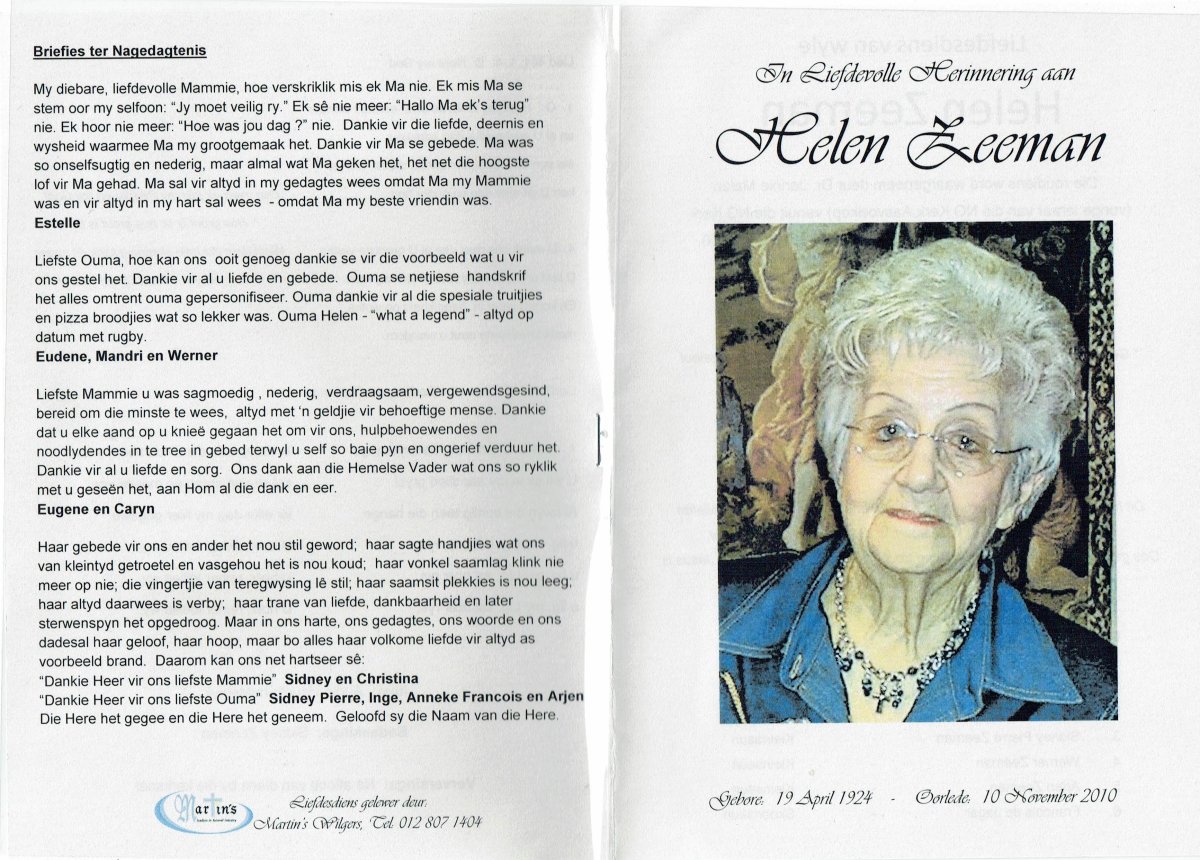 Briefies ter Nagedagtenis
My diebare, liefdevolle Mammie, hoe verskriklik mis ek Ma nie. Ek mis Ma se
stem oor my selfoon: “Jy moet veilig ry.” Ek sê nie meer: “Hallo Ma ek’s terug”
nie. Ek hoor nie meer: “Hoe was jou dag ?” nie.  Dankie vir die liefde, deernis en
wysheid waarmee Ma my grootgemaak het. Dankie vir Ma se gebede. Ma was
so onselfsugtig en nederig, maar almal wat Ma geken het, het net die hoogste
lof vir Ma gehad. Ma sal vir altyd in my gedagtes wees omdat Ma my Mammie
was en vir altyd in my hart sal wees  - omdat Ma my beste vriendin was.
Estelle
Liefste Ouma, hoe kan ons  ooit genoeg dankie se vir die voorbeeld wat u vir
ons gestel het. Dankie vir al u liefde en gebede.  Ouma se netjiese  handskrif
het alles omtrent ouma gepersonifiseer. Ouma dankie vir al die spesiale truitjies
en pizza broodjies wat so lekker was. Ouma Helen - “what a legend” - altyd op
datum met rugby.
Eudene, Mandri en Werner
Liefste Mammie u was sagmoedig , nederig,  verdraagsaam, vergewendsgesind,
bereid om die minste te wees,  altyd met ‘n geldjie vir behoeftige mense. Dankie
dat u elke aand op u knieë gegaan het om vir ons, hulpbehoewendes en
noodlydendes in te tree in gebed terwyl u self so baie pyn en ongerief verduur het.
Dankie vir al u liefde en sorg.  Ons dank aan die Hemelse Vader wat ons so ryklik
met u geseën het, aan Hom al die dank en eer.
Eugene en Caryn
Haar gebede vir ons en ander het nou stil geword;  haar sagte handjies wat ons
van kleintyd getroetel en vasgehou het is nou koud;  haar vonkel saamlag klink nie
meer op nie; die vingertjie van teregwysing lê stil; haar saamsit plekkies is nou leeg;
haar altyd daarwees is verby;  haar trane van liefde, dankbaarheid en later
sterwenspyn het opgedroog. Maar in ons harte, ons gedagtes, ons woorde en ons
dadesal haar geloof, haar hoop, maar bo alles haar volkome liefde vir altyd as
voorbeeld brand.  Daarom kan ons net hartseer sê:
“Dankie Heer vir ons liefste Mammie”  Sidney en Christina
“Dankie Heer vir ons liefste Ouma”  Sidney Pierre, Inge, Anneke Francois en Arjen
Die Here het gegee en die Here het geneem.  Geloofd sy die Naam van die Here.
Martin's
Liefdesdiens gelewer deur:
Martin's Wilgers, Tel. 012 807 1404
In Liefdevolle Herinnering aan
Helen Zeeman
Gebore:  19 April 1924   -   Oorlede:  10 November 2010